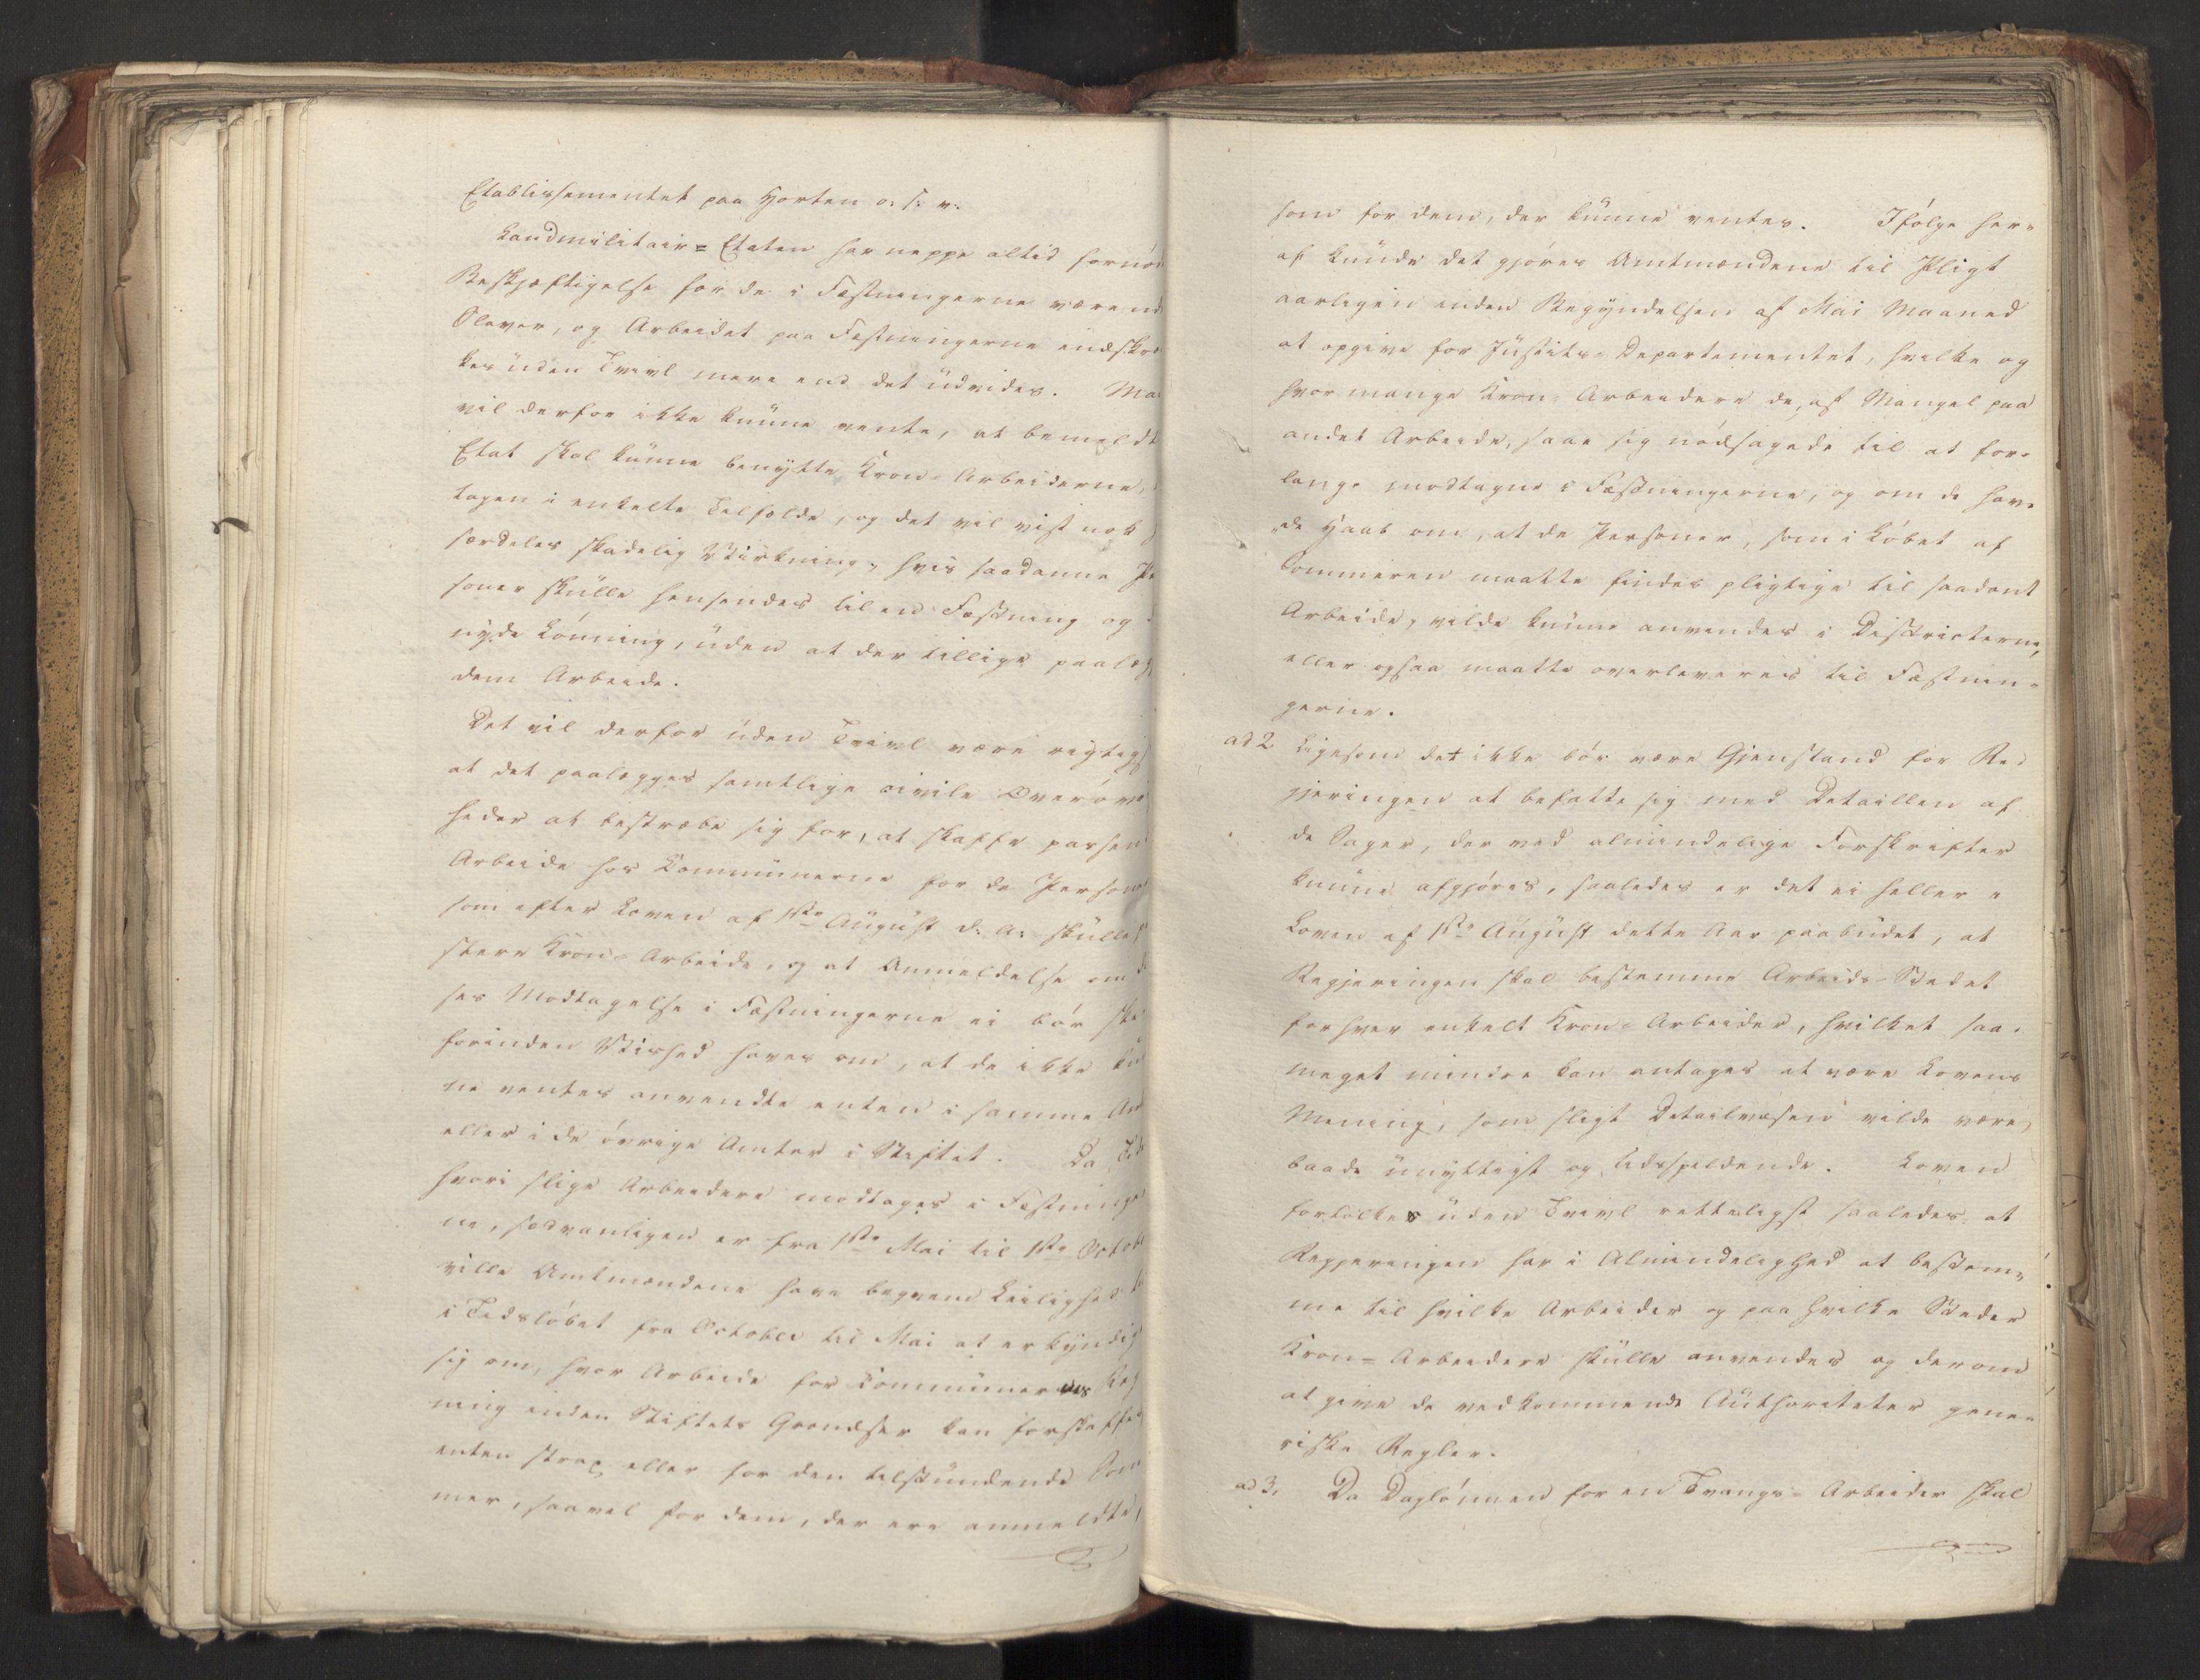 Etablissementet paa Horten o: s: v:
Landmilitair-Etaten har neppe altid fornød
Beskjæftigelse for de i Fæstningerne værende
Slaver, og Arbeidet paa Fæstningerne indskræn
kes uden Tvivl mere end det udvides. Man
vil derfor ikke kunne vente, at bemeldte
Etat skal kunne benytte Kron-Arbeiderne,
tagen i enkelte Tilfælde, og det vil vist nok
særdeles skadelig Virkning, hvis saadanne Per
soner skulle hensendes til en Fæstning og
nyde Lønning, uden at der tillige paalægges
dem Arbeide.
Det vil derfor uden Tvivl være rigtigst
at det paalægges samtlige civile Øvrig
heder at bestræbe sig for, at skaffe passende
Arbeide hos Kommunerne for de Personer
som efter Loven af 1ste August d: A: skulle
stere Kron-Arbeide, og at Anmeldelse om de
res Modtagelse i Fæstningerne ei bør skee
forinden Vished haves om, at de ikke kun
ne ventes anvendte enten i samme Amt
eller i de øvrige Amter i Stiftet. Da Tiden
hvori slige Arbeidere modtages i Fæstninger
ne, sædvanligen er fra 1ste Mai til 1ste October
ville Amtmændene have beqvem Leilighed til
i Tidsløbet fra October til Mai at erkyndige
sig om, hvor Arbeide for Kommunernes Reg
ning inden Stiftets Grændser kan forskaffes
enten strax eller for den tilstundende Som
mer, saavel for dem, der ere anmeldte,
som for dem, der kunne ventes. Ifølge her-
af kunde det gjøres Amtmændene til Pligt
aarligen inden Begyndelsen af Mai Maaned
at opgive for Justits-Departementet, hvilke og
hvor mange Kron-Arbeidere de, af Mangel paa
andet Arbeide, saae sig nødsagede til at for-
lange modtagne i Fæstningerne, og om de hav-
de Haab om, at de Personer, som i Løbet af
Sommeren maatte findes pligtige til saadant
Arbeide, vilde kunne anvendes i Districterne,
eller ogsaa maatte overleveres til Fæstnin-
gerne.
ad 2 Ligesom det ikke bør være Gjenstand for Re-
gjeringen at befatte sig med Detaillen af
de Sager, der ved almindelige Forskrifter
kunne afgjøres, saaledes er det ei heller i
Loven af 1ste August dette Aar paabudet, at
Regjeringen skal bestemme Arbeids-Stedet
for hver enkelt Kron-Arbeider, hvilket saa-
meget mindre kan antages at være Lovens
Mening, som sligt Detailvæsen vilde være
baade unyttigt og tidsspildende. Loven
fortolkes uden Tvivl retteligst saaledes, at
Regjeringen har i Almindelighed at bestem-
me til hvilke Arbeider og paa hvilke Steder
Kron-Arbeidere skulle anvendes og derom
at give de vedkommende Authoriteter gene-
riske Regler.
ad 3, Da Dagslønnen for en Tvangs-Arbeider skal